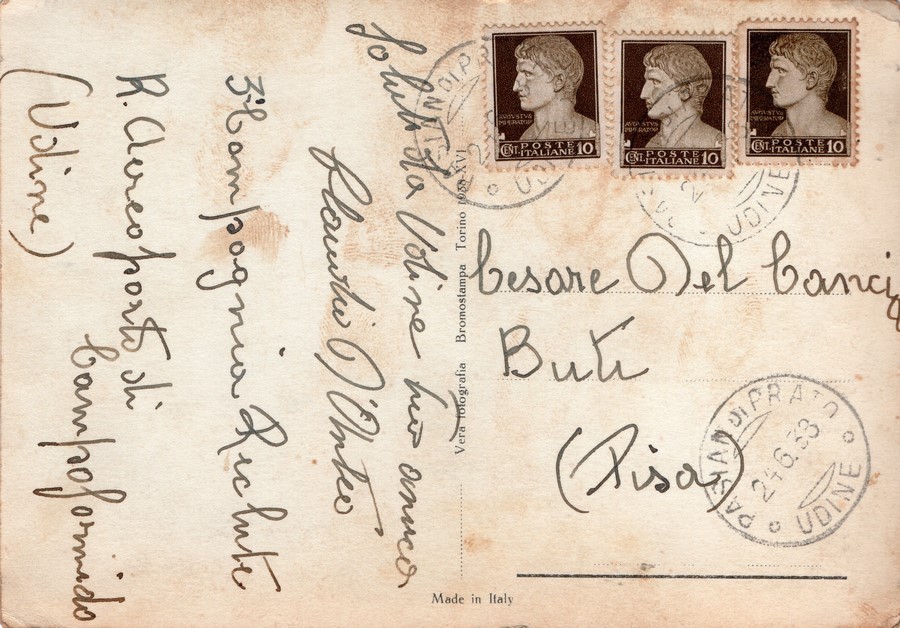 Saluti da Udine tuo amico
Claudio
3ª Compagnia Reclute
R. Aereoporto di
Campoformido
(Udine)
Vera fotografia Bromostampa Torino 1938-XVI
AVGVSTVS
IMPERATOR
CENT. POSTE ITALIANE 10
AVGVSTVS
IMPERATOR
CENT. POSTE ITALIANE 10
AVGVSTVS
IMPERATOR
CENT. POSTE ITALIANE 10
UDINE
UDINE
Cesare Del Cancia
Buti
(Pisa)
PASIAN DI PRATO
24.6.38
UDINE
Made in Italy